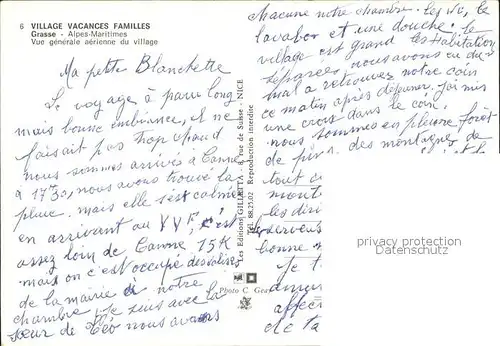 6 VILLAGE VACANCES FAMILLES
Grasse - Alpes-Maritimes
Vue générale aérienne du village
Ma petite Blanchette
Le voyage à paru long
mais bonne embiance, il ne
faisait pas trop chaud
nous sommes arrivés à Canne
à 17 30, nous avons trouvé la
pluie. mais elle s'est calmée
en arrivant au VVF, c'est
assez loin de Canne 15K
mais on c'est occupé des valises
de la mairie à notre
chambre je suis avec la
sœur de Cléo nous avons
Les Editions GILLETTA - 8, rue de Suisse - NICE
Tél. 88.25.02 Reproduction interdite
Photo C. Gea
chacune notre chambre. les W,
lavabo et une douche. le
village est grand les Habitation
séparées nous avons eu du
mal a retrouvez notre coin
ce matin après déjeuner. j'ai mis
une croix dans le coin.
nous sommes en pleine forêt
de pins, des montagnes de
tout
mont
les diri
bonne
Je t
amu
affec
de ta
privacy protection
Datenschutz